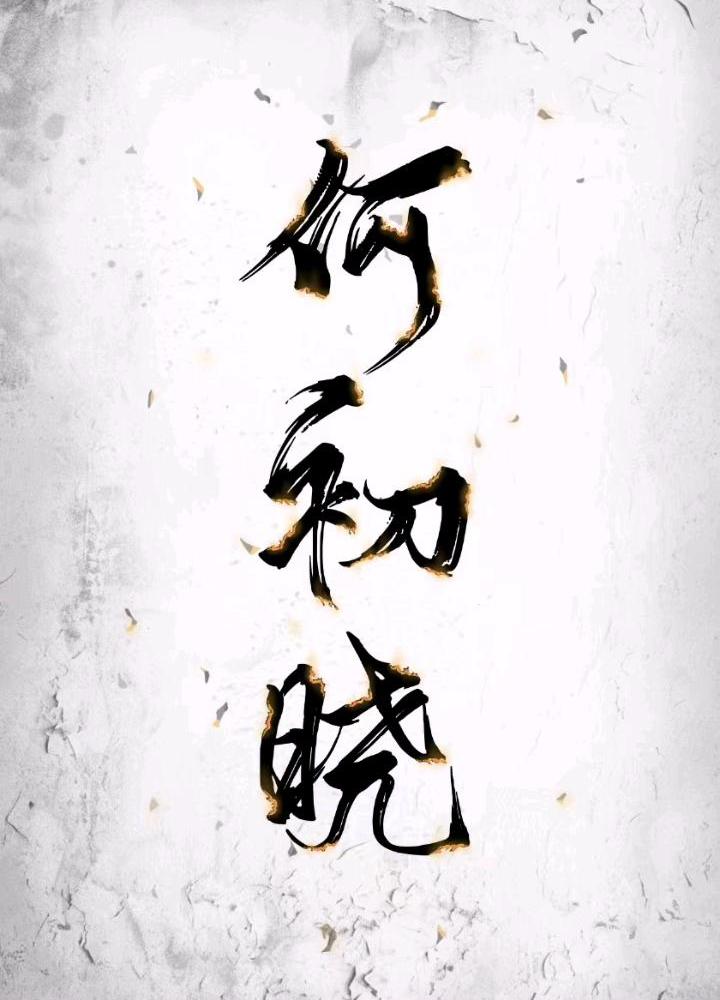 何初晓